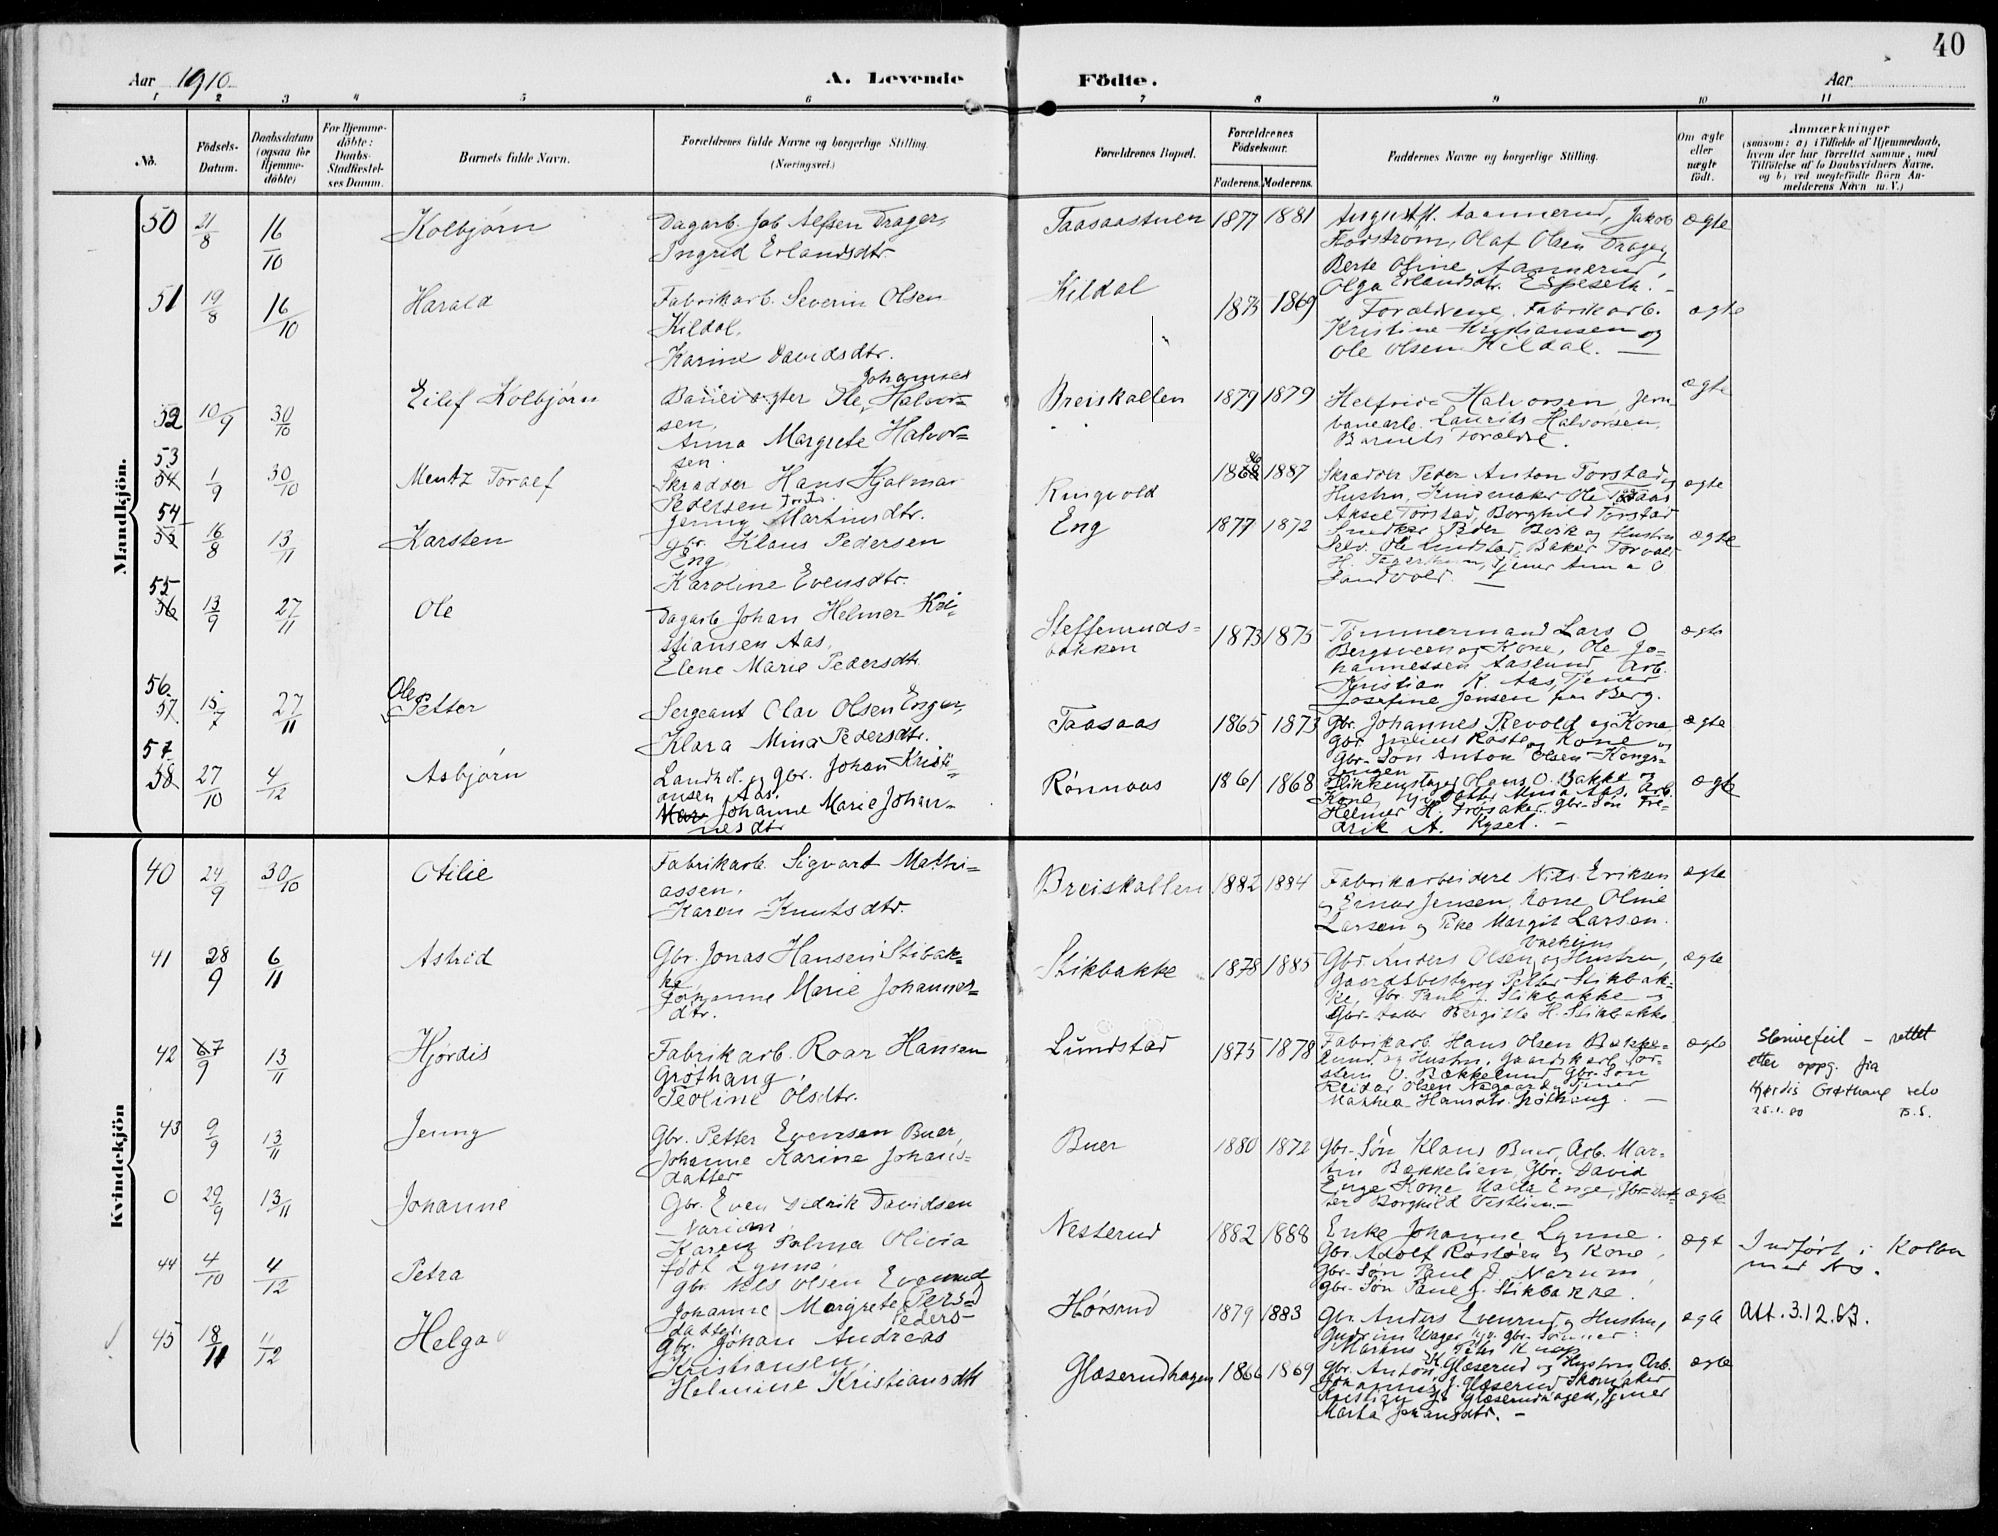 40
Aar 1910.
A. Levende Födte.
Aar
1 2 3 4 5 6 7 8 9 10 11
No.
Födsels-
Datum.
Daabsdatum
(ogsaa for
Hjemme-
döbte)
For Hjemme-
döbte:
Daabs-
Stadfæstel-
ses Datum.
Barnets fulde Navn.
Forældrenes fulde Navne og borgerlige Stilling.
(Næringsvei.)
Forældrenes Bopæl.
Forældrenes
Födselsaar.
Faderens. Moderens.
Faddernes Navne og borgerlige Stilling.
Om ægte
eller
uægte
födt.
Anmærkninger
(saasom: a) i Tilfælde af Hjemmedaab,
hvem der har forrettet samme, med
Tilföielse af to Daabsvidners Navne,
og b) ved uægtefödte Börn An-
melderens Navn m. V.)
Mandkjön.
50 21/8 16/10 Kolbjørn
Dagarb. Job Alfsen Drager,
Ingrid Erlandsdtr.
Taasaastuen 1877 1881
August H. Aannerud, Jakob
Forström, Olaf Olsen Drager
Berte Oline Aannerud,
Olga Erlandsdtr. Espeseth. -
ægte
51 19/8 16/10 Harald
Fabrikarb. Severin Olsen
Kildal,
Karine Davidsdtr.
Kildal 1873 1869
Forældrene, Fabrikarb.
Kristine Kristiansen og
Ole Olsen Kildal. —
ægte
52 10/9 30/10 Eilef Kolbjørn
Johannes
Banevogter Ole Halvor-
sen,
Anna Margrete Halvor-
sen.
Breiskallen 1879 1879
Helfride Halvorsen, Jern-
banearb. Laurits Halvorsen,
Barnets Forældre.
ægte
53 54 1/9 30/10 Mentz Toralf
Skrædder Hans Hjalmar
Pedersen
Jenny Martinsdtr.
Ringvold 1868 86 1887
Skrædder Peder Anton Torstad og
Hustru,
Aksel Torstad, Borghild Torstad
ægte
54 16/8 13/11 Karsten
gbr. Klaus Pedersen
Eng,
Karoline Evensdtr.
Eng 1877 1872
ægte
55 56 13/9 27/11 Ole
Dagarb Johan Helmer Kri-
stiansen Aas,
Elene Marie Pedersdtr.
Steffensruds-
bakken
1873 1875
Tømmermand Lars O
Bergsveen og Kone, Ole Jo-
hannessen Aaslund, Arb.
Kristian K. Aas, Tjener
Josefine Jensen fra Berg.
ægte
56 57 15/7 27/11 Ole Petter
Sergeant Olav Olsen Enger,
Klara Mina Pedersdtr.
Taasaas 1865 1873
Gbr. Johannes Revold og Kone
gbr Julius Røste og Kone og
Gbr-Søn Anton Olsen Kongs-
ængen
ægte
57 58 27/10 4/12 Asbjørn
Landh. og Gbr. Johan Kristi-
ansen Aas,
Johanne Marie Johan-
nesdtr
Rønnaas 1861 1868
Hans O. Bakke og
Kone, Mina Aas, Arb.
Helmer H. gbr-Søn Fre-
drik A. Kyset. -
ægte
Kvindekjön
40 24/9 30/10 Otilie
Fabrikarb. Sigvart Mathi-
assen,
Karen Knutsdtr.
Breiskallen 1882 1884
Fabrikarbeidere Nils Eriksen
og Einar Jensen, Kone Oline
Larsen og Pike Margit Larsen.
ægte
41 28/9 6/11 Astrid
Gbr. Jonas Hansen Stibak-
ke,
Johanne Marie Johannes-
dtr.
Stikbakke 1878 1885
Gbr Anders Olsen og Hustru,
Gaardsbestyrer Petter Stikbak-
ke, Gbr. Paul J. Stikbakke og
Gbr-datter Bergitte H. Stikbakke
ægte
42 7/9 13/11 Hjørdis
Fabrikarb. Roar Hansen
Grøthang,
Teoline Olsdtr.
Lundstad 1875 1878
Fabrikarb. Hans Olsen Bække-
lund og Hustru, Gaardsarb. Tor-
stein O. Bækkelund, Gbr. Søn
Reidar Olsen Nøgaard, Tjener
Mathea Hansdtr. Grøthang. —
ægte
Skrivefeil - rettet
etter oppg. fra
Hjørdis Grøthang selv
25.1.80
43 9/9 13/11 Jenny
Gbr. Petter Evensen Buer,
Johanne Karine Johans-
datter
Buer 1880 1872
Gbr. Søn Klaus Buer, Arb. Mar-
tin Bækkelien, Gbr. David
Enge Kone Enge, Gbr. Dat-
ter Borghild Vestlien. -
ægte
0 29/9 13/11 Johanne
Gbr. Even Didrik Davidsen
Narum,
Karen Palma Olivia
født Lynne,
Nesterud 1882 1888
Enke Johanne Lynne,
Gbr. Adolf Røstøen og Kone,
Gbr-Søn Paul J. Narum,
gbr-Søn Paul J. Stikbakke.
ægt
Indført i Kolbu
med No.
44 4/10 4/12 Petra
Gbr. Nils Olsen Evenrud
Johanne Margrete (Pers-)
Peders-
datter.
Hørsrud 1879 1883
Gbr. Anders Evenrud og Hustru,
gbr. Sønner:
ægte
Att. 3.12.63.
45 18/11 11/12 Helga
Gbr. Johan Andreas
Kristiansen,
Helmine Kristiansdtr
Glæserudhagen 1866 1869
Gbr. Anton Glæserud og Hustru, Arb.
Glæserud, Skomaker
Kristian Glæserudhagen, Tjener
Marta Johansdtr. -
ægte